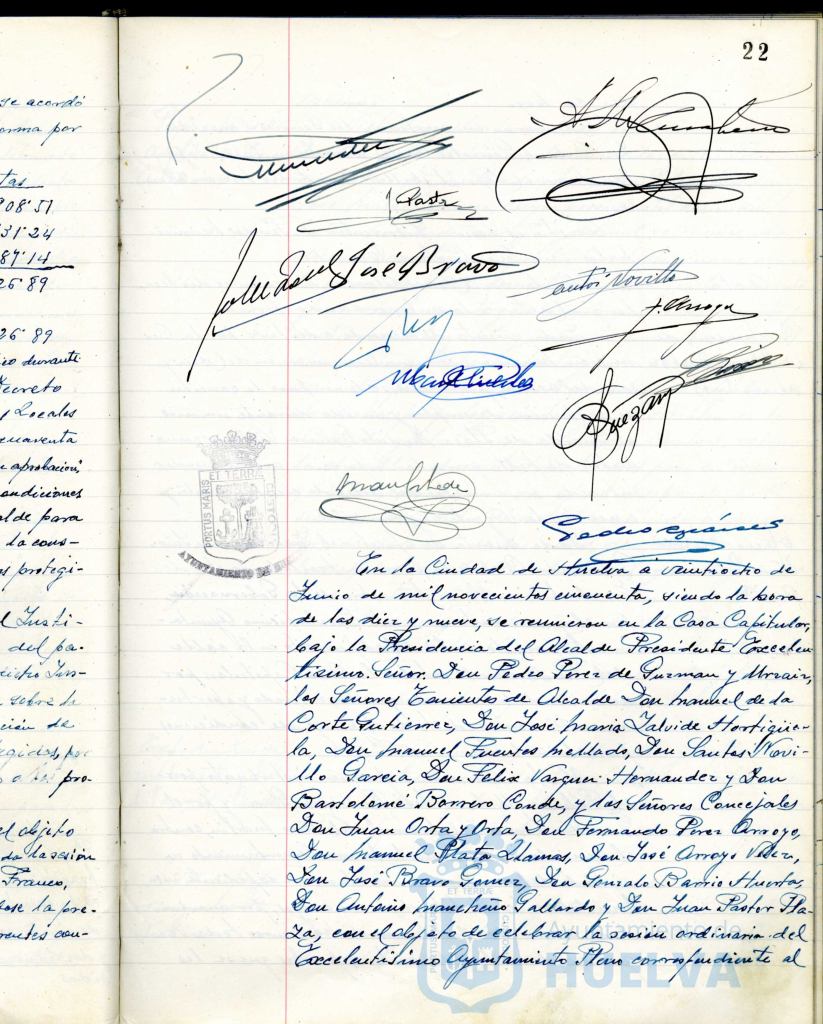 se acordó
orma por
tas
908'51
31'24
87'14
26'89
26'89
ico durante
Decreto
y Locales
cuarenta
aprobación
condiciones
alde para
la cons-
protegi-
l Insti-
del pa-
sobre la
ción de
egidas, por
pro-
el objeto
da la sesión
Franco,
ose la pre-
rentes con-
22
J Pastor
José Bravo
Novillo
J. Arroyo
PORTUS MARIS ET TERRÆ CUSTODIA
AYUNTAMIENTO DE
En la Ciudad de Huelva a veintiocho de
Junio de mil novecientos cincuenta, siendo la hora
de las diez y nueve, se reunieron en la Casa Capitular,
bajo la Presidencia del Alcalde Presidente Excelen-
tísimo Señor Don Pedro Perez de Guzman y Urzaiz,
los Señores Tenientes de Alcalde Don Manuel de la
Corte Gutierrez, Don José Maria Zalvide Hortigüe-
la, Don Manuel Fuentes Mellado, Don Santos Novi-
llo Garcia, Don Felix Vazquez Hernandez y Don
Bartolomé Borrero Conde, y los Señores Concejales
Don Juan Orta y Orta, Don Fernando Perez Arroyo,
Don Manuel Plata Llamas, Don José Arroyo
Don José Bravo Gomez, Don Gonzalo Barrio Huertas,
Don Antonio Mancheño Gallardo y Don Juan Pastor Pla-
za, con el objeto de celebrar la sesión ordinaria del
Excelentísimo Ayuntamiento Pleno correspondiente al
Ayuntamiento de
HUELVA